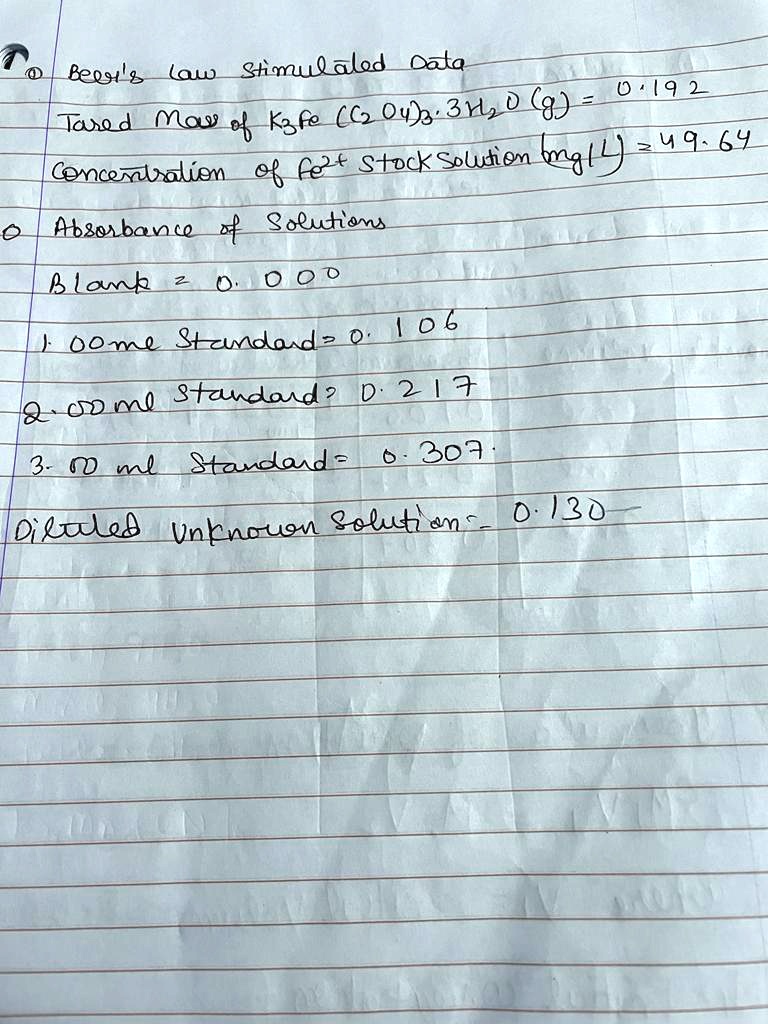 ① Beer's law Stimulated Data
Tared Mass of K3Fe (C2O4)3.3H2O (g) = 0.192
Concentration of Fe2+ Stock Solution (mg/L) = 49.64
o Absorbance of Solutions
Blank = 0.000
1.00 ml Standard = 0.106
2.00 ml Standard = 0.217
3.00 ml Standard = 0.307.
Diluted Unknown Solution = 0.130